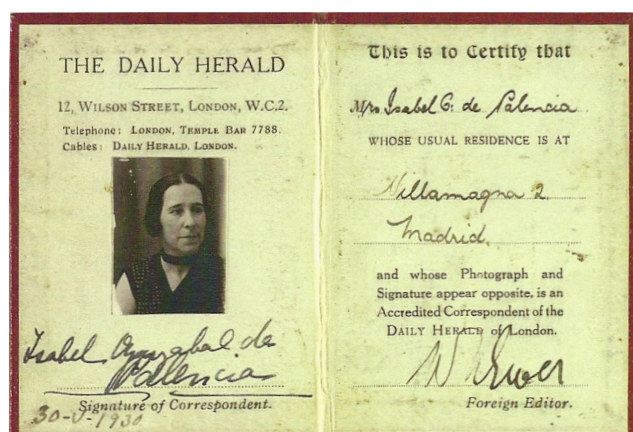 THE DAILY HERALD
12, WILSON STREET, LONDON, W.C.2.
Telephone: LONDON, TEMPLE BAR 7788.
Cables: DAILY HERALD, LONDON.
Isabel Oyarzabal de
Palencia
Signature of Correspondent.
30-V-1930
This is to Certify that
Mrs Isabel O. de Palencia
WHOSE USUAL RESIDENCE IS AT
Villamagna 2
Madrid.
and whose Photograph and
Signature appear opposite, is an
Accredited Correspondent of the
DAILY HERALD of London.
W N Ewer
Foreign Editor.